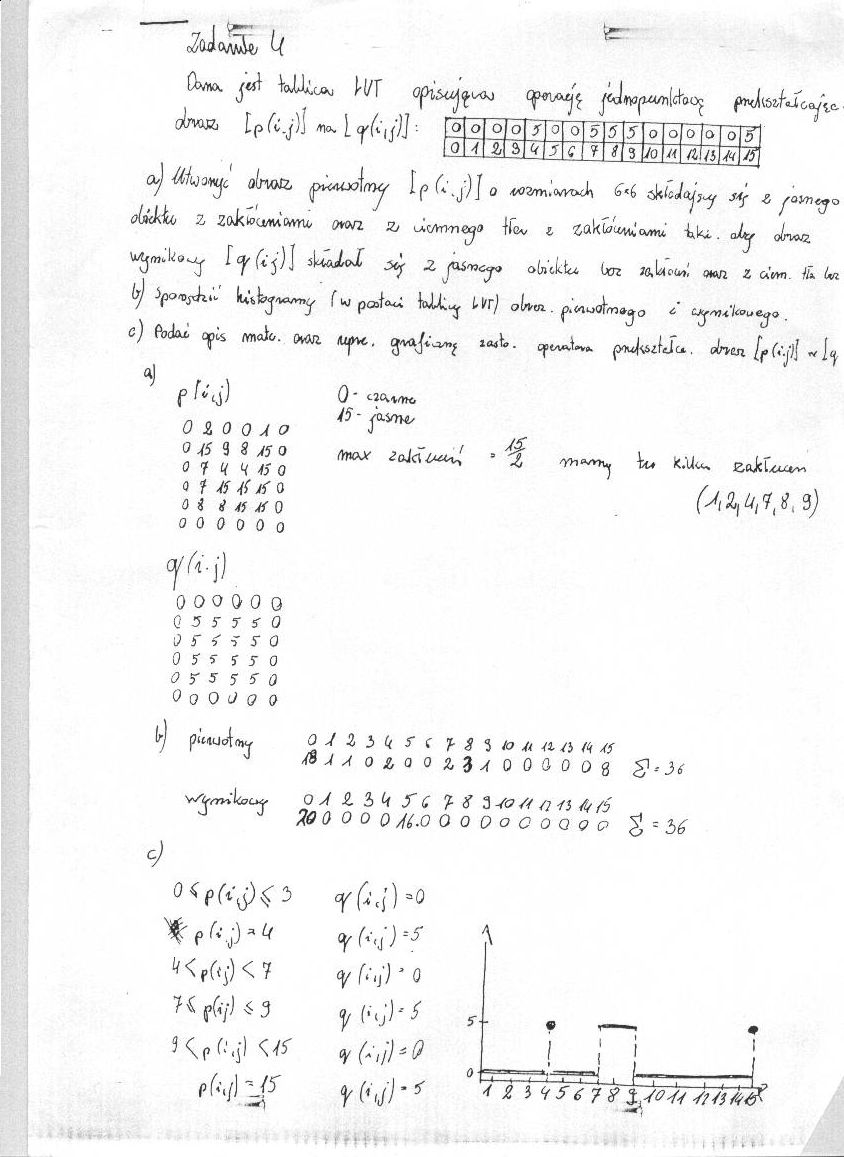 Zadanie 4
Dana jest tablica LUT opisująca operację jednopunktową przekształcając
obraz [p(i,j)] na [q(i,j)]:
0 0 0 0 5 0 0 5 5 5 0 0 0 0 0 5
0 1 2 3 4 5 6 7 8 9 10 11 12 13 14 15
a) Utworzyć obraz pierwotny [p(i,j)] o rozmiarach 6x6 składający się z jasnego
obiektu z zakłóceniami oraz z ciemnego tła z zakłóceniami taki. aby obraz
wynikowy [q(i,j)] składał się z jasnego obiektu bez zakłóceń oraz z ciem. tła bez
b) Sporządzić histogramy (w postaci tablicy LUT) obraz. pierwotnego i wynikowego.
c) Podać opis mate. oraz repre. graficzną zasto. operatora przekształca. obraz [p(i,j)] w [q
a)
p(i,j)
0 - czarne
15 - jasne
0 2 0 0 1 0
0 15 9 8 15 0
0 7 4 4 15 0
0 7 15 15 15 0
0 8 8 15 15 0
0 0 0 0 0 0
max zakłuceń = 15/2 mamy tu kilka zakłuceń
(1,2,4,7,8,9)
q(i,j)
0 0 0 0 0 0
0 5 5 5 5 0
0 5 5 5 5 0
0 5 5 5 5 0
0 5 5 5 5 0
0 0 0 0 0 0
b) pierwotny 0 1 2 3 4 5 6 7 8 9 10 11 12 13 14 15
18 1 1 0 2 0 0 2 3 1 0 0 0 0 0 8 Σ = 36
wynikowy 0 1 2 3 4 5 6 7 8 9 10 11 12 13 14 15
20 0 0 0 0 16 0 0 0 0 0 0 0 0 0 0 Σ = 36
c)
0 ≤ p(i,j) ≤ 3 q(i,j) = 0
p(i,j) = 4 q(i,j) = 5
4 < p(i,j) < 7 q(i,j) = 0
7 ≤ p(i,j) ≤ 9 q(i,j) = 5
9 < p(i,j) < 15 q(i,j) = 0
p(i,j) = 15 q(i,j) = 5
5
0
1 2 3 4 5 6 7 8 9 10 11 12 13 14 15